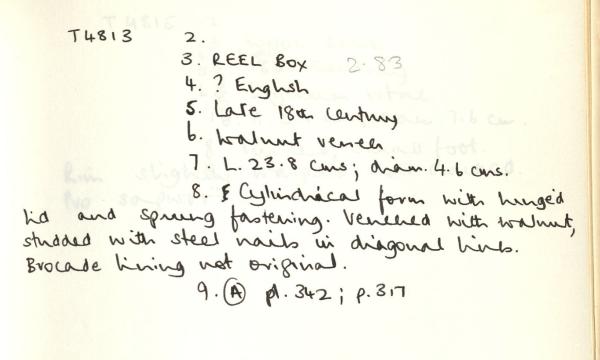 T4813 2.
3. REEL BOX 2.83
4. ? English
5. Late 18th century
6. Walnut veneer
7. L. 23.8 cms; diam. 4.6 cms.
8. Cylindrical form with hinged
lid and sprung fastening. Veneered with walnut,
studded with steel nails in diagonal lines.
Brocade lining not original.
9. (A) pl. 342; p. 317